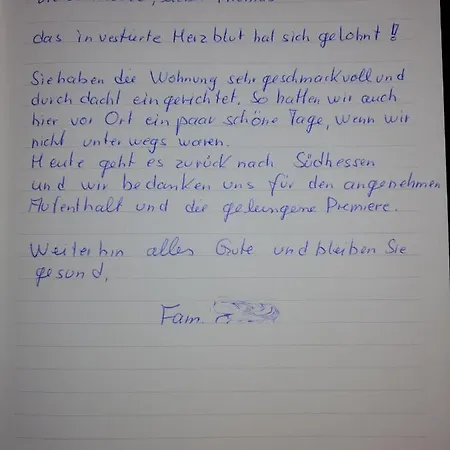 das investierte Herzblut hat sich gelohnt !!
Sie haben die Wohnung sehr geschmackvoll und
durch dacht eingerichtet. So hatten wir auch
hier vor Ort ein paar schöne Tage, wenn wir
nicht unterwegs waren.
Heute geht es zurück nach Südhessen
und wir bedanken uns für den angenehmen
Aufenthalt und die gelungene Premiere.
Weiterhin alles Gute und bleiben Sie
gesund,
Fam.